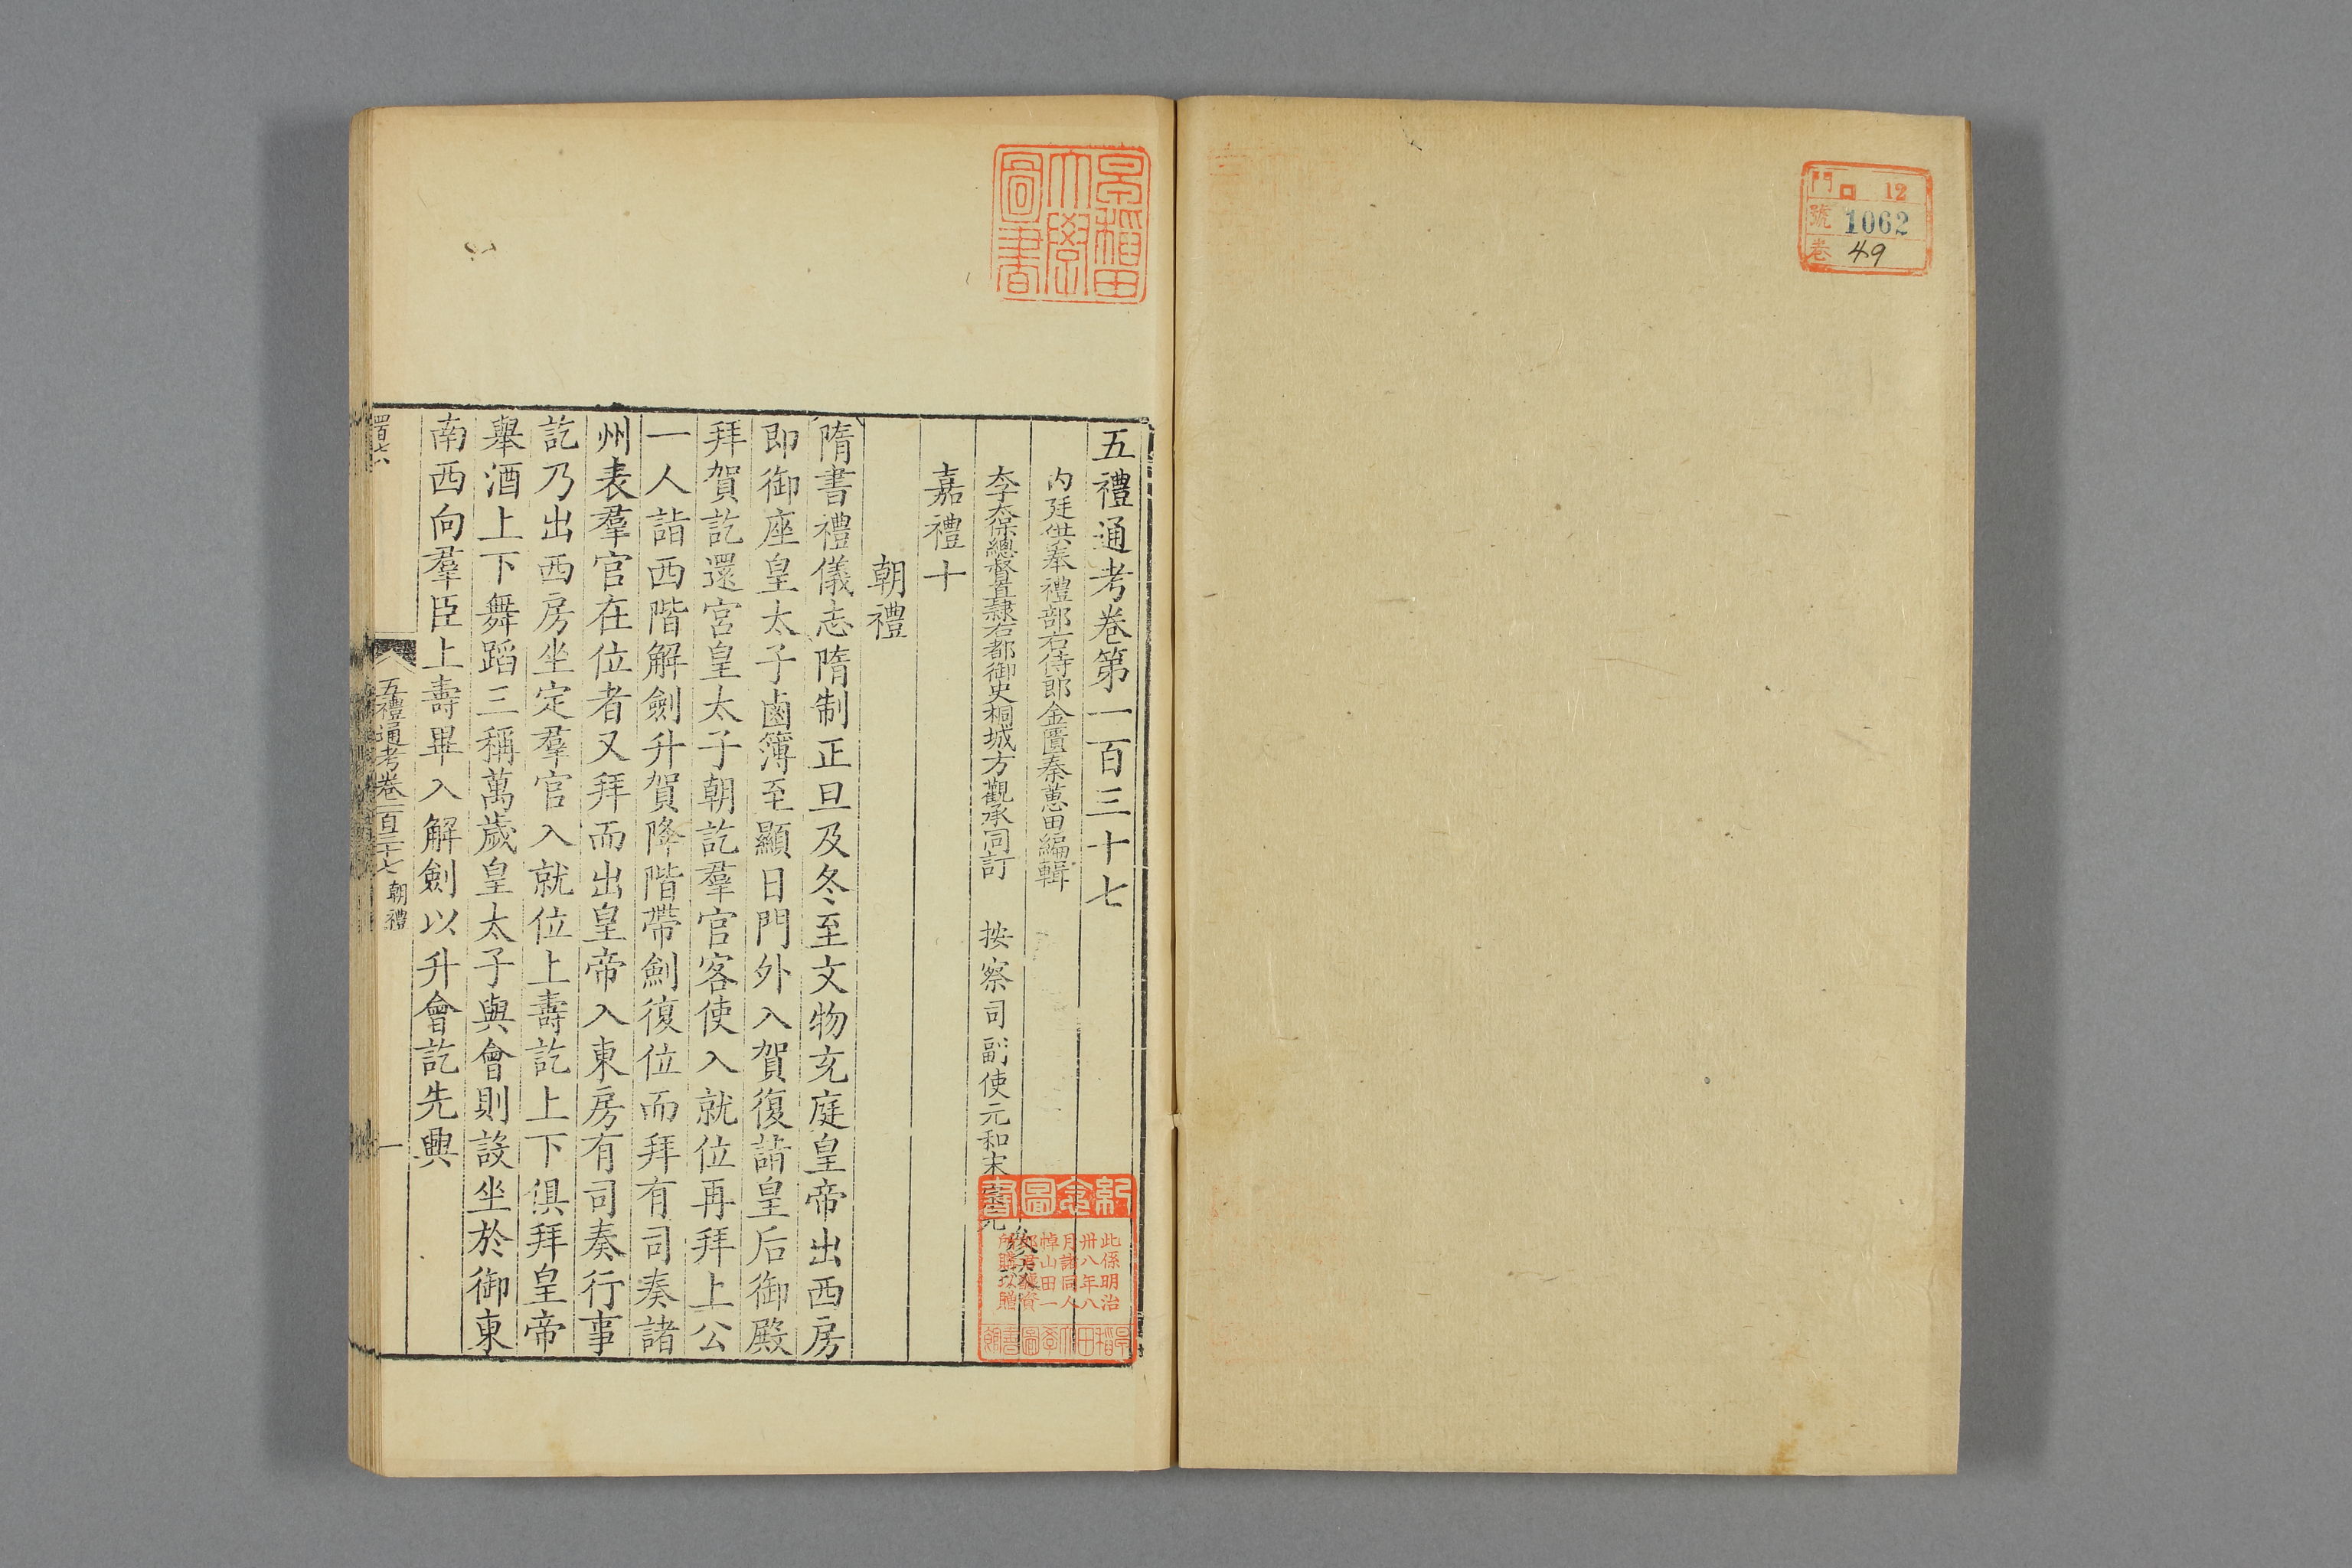 門 ロ 12
號 1062
卷 49
早稻田
大學
圖書
五禮通考卷第一百三十七
内廷供奉禮部右侍郎金匱秦蕙田編輯
太子太保總督直隸右都御史桐城方觀承同訂 按察司副使元和宋宗元
嘉禮十
朝禮
隋書禮儀志隋制正旦及冬至文物充庭皇帝出西房
即御座皇太子鹵簿至顯日門外入賀復請皇后御殿
拜賀訖還宮皇太子朝訖羣官客使入就位再拜上公
一人詣西階解劍升賀降階帶劍復位而拜有司奏諸
州表羣官在位者又拜而出皇帝入東房有司奏行事
訖乃出西房坐定羣官入就位上壽訖上下俱拜皇帝
舉酒上下舞蹈三稱萬歲皇太子與會則設坐於御東
南西向羣臣上壽畢入解劍以升會訖先興
五禮通考卷一百三十七 朝禮
一
紀念圖書
此係明治
卅八年八
月諸同人
悼山田一
郎君醵資
所購以贈
早稻田大學圖書館